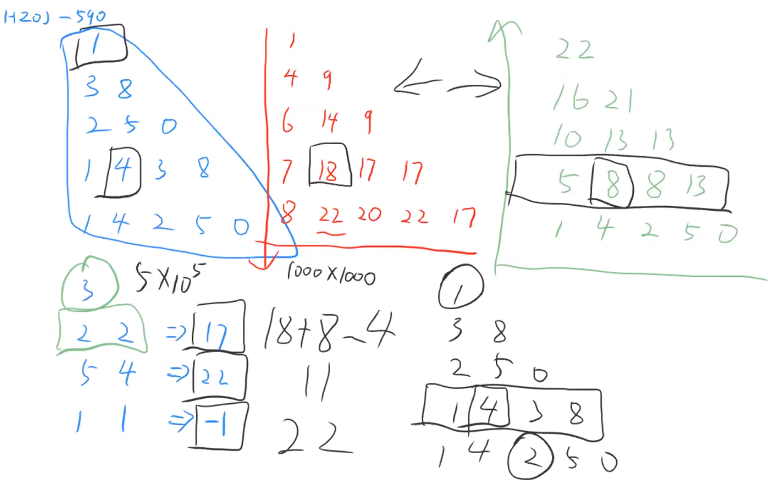 H20J-590
1
3 8
2 5 0
1 4 3 8
1 4 2 5 0
1
4 9
6 14 9
7 18 17 17
8 22 20 22 17
22
16 21
10 13 13
5 8 8 13
1 4 2 5 0
3 5×10⁵
2 2 ⇒ 17 18+8-4
5 4 ⇒ 22 11
1 1 ⇒ -1 22
1000×1000
1
3 8
2 5 0
1 4 3 8
1 4 2 5 0